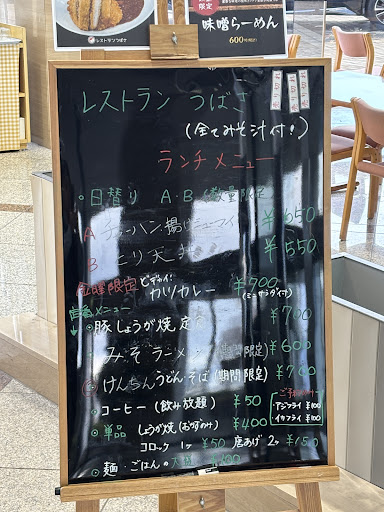 レストランつばさ
限定
味噌らーめん
600円(税込)
レストラン つばさ
(全てみそ汁付!)
ランチメニュー
○日替り A・B (数量限定)
A チャーハン、揚げシューマイ ¥650
B とり天丼 ¥550
金曜限定 ビタイ! カツカレー ¥700
(ミニサラダ付)
定番メニュー
○豚しょうが焼定食 ¥700
みそラーメン (期間限定) ¥600
けんちんうどん・そば (期間限定) ¥700
○コーヒー (飲み放題) ¥50
○単品 しょうが焼 (おかずのみ) ¥400
コロッケ 1ヶ ¥50 唐あげ 2ヶ ¥150
アジフライ ¥100
イカフライ ¥100
○麺・ごはんの大盛 ¥100